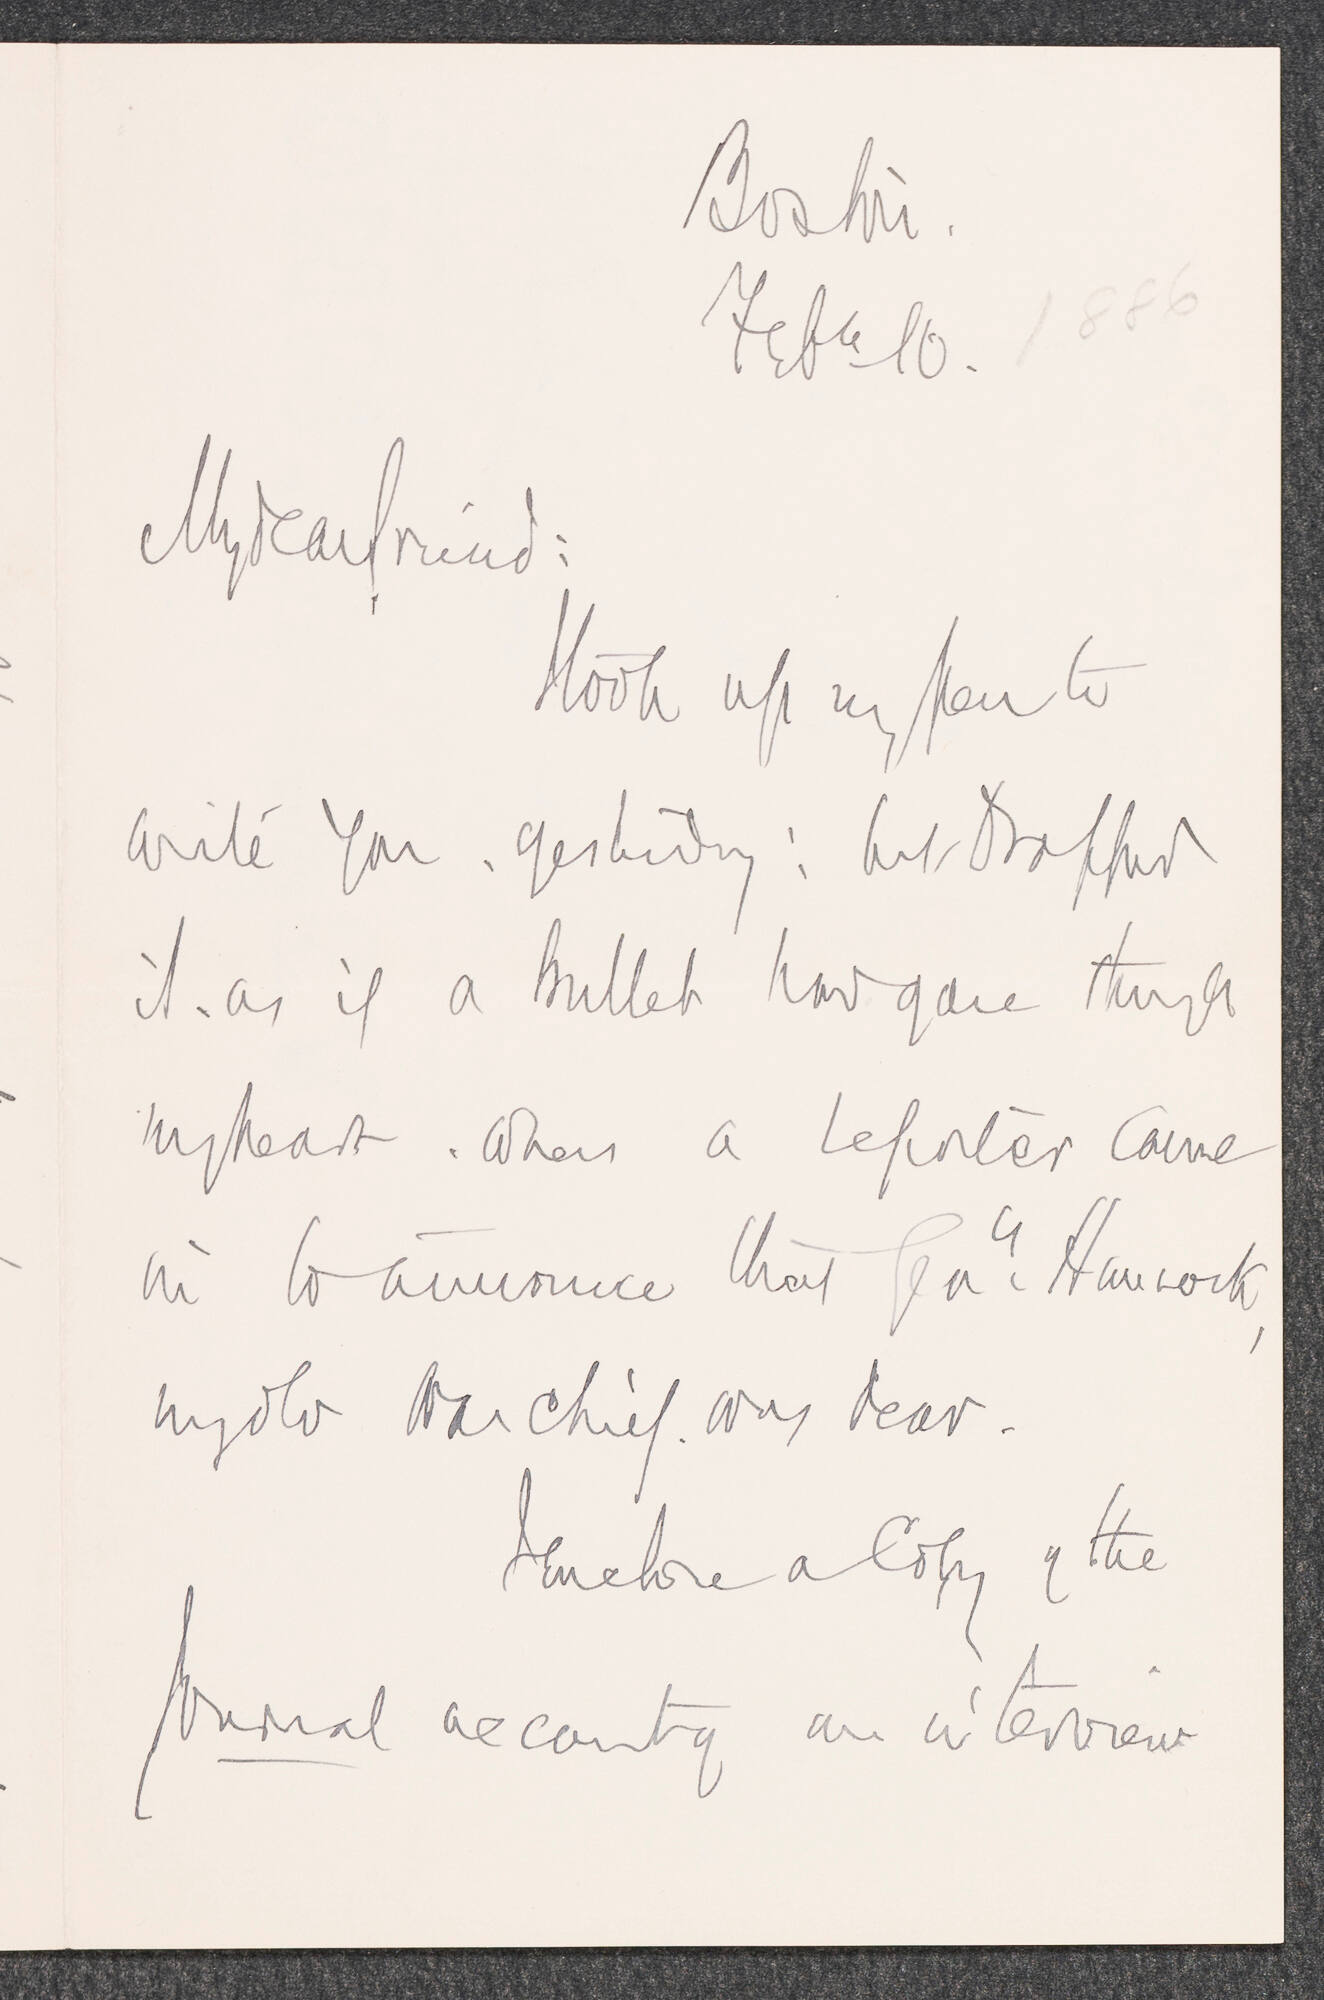 Boston.
Feby 10. 1886
My dear friend:
I took up my pen to
write you, yesterday; but dropped
it, as if a bullet had gone through
my heart, when a reporter came
in to announce that Genl. Hancock,
my old war chief, was dead.
I enclose a copy of the
Journal account of an interview